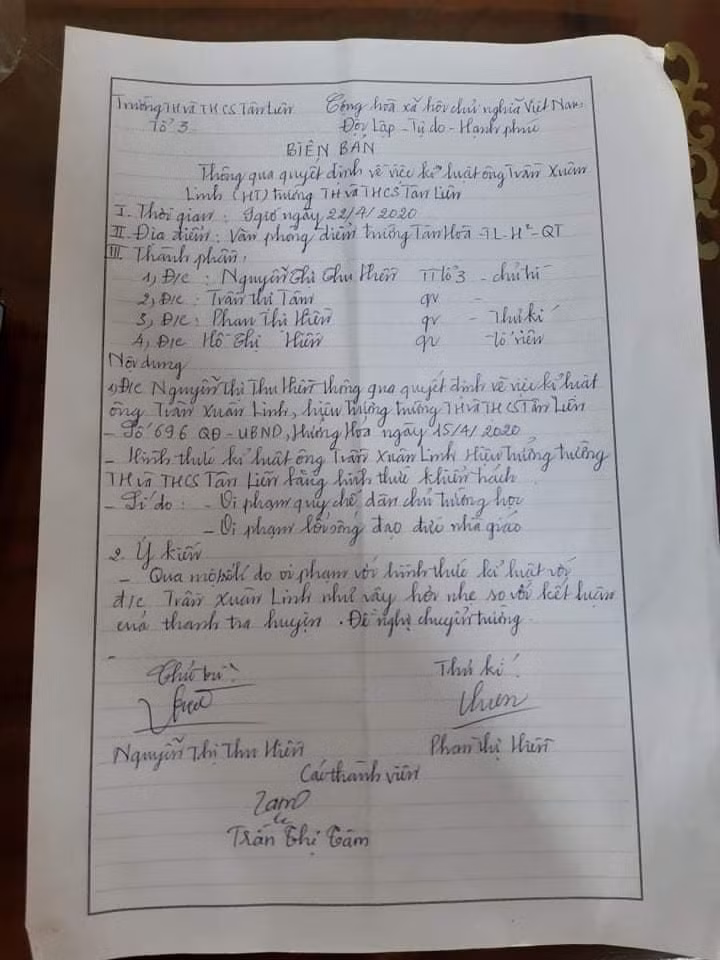 Trường TH và THCS Tân Liên Cộng hoà xã hội chủ nghĩa Việt Nam
Tổ 3 Độc Lập - Tự do - Hạnh phúc
BIÊN BẢN
Thông qua quyết định về việc kỉ luật ông Trần Xuân
Linh (HT) trường TH và THCS Tân Liên
I. Thời gian: 9giờ ngày 22/4/2020
II. Địa điểm: Văn phòng điểm trường Tân Hoà - TL - H² - QT
III. Thành phần:
1, Đ/c: Nguyễn Thị Thu Hiền TTổ 3 - chủ trì
2, Đ/c: Trần Thị Tâm gv -
3, Đ/c: Phan Thị Hiền gv - Thư kí
4, Đ/c Hồ Thị Hiền gv tổ viên
Nội dung
1, Đ/c Nguyễn Thị Thu Hiền thông qua quyết định về việc kỉ luật
ông Trần Xuân Linh, hiệu trưởng trường TH và THCS Tân Liên
- Số 696 QĐ - UBND, Hướng Hoá ngày 15/4/2020
- Hình thức kỉ luật ông Trần Xuân Linh Hiệu trưởng trường
TH và THCS Tân Liên bằng hình thức khiển trách
- Lí do: - Vi phạm quy chế dân chủ trường học
- Vi phạm lối sống đạo đức nhà giáo
2. Ý kiến
- Qua một số lí do vi phạm với hình thức kỉ luật với
đ/c Trần Xuân Linh như vậy hơi nhẹ so với kết luận
của thanh tra huyện. Đề nghị chuyển trường
-
Chủ trì: Thư kí
Nguyễn Thị Thu Hiền Phan Thị Hiền
Các thành viên
Trần Thị Tâm